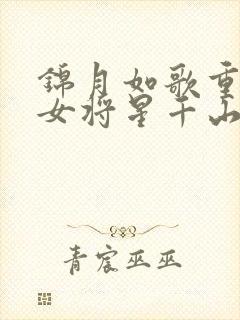 锦月如歌重
女将星千山
青宸巫巫